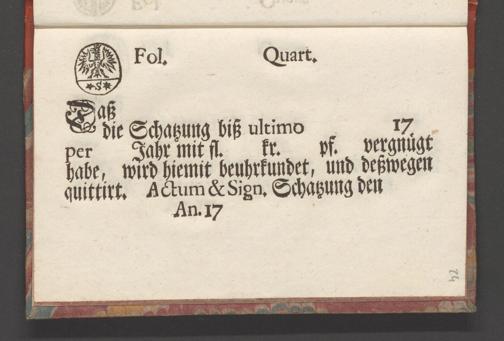 Fol. Quart.
*S*
Daß
die Schatzung biß ultimo 17
per Jahr mit fl. kr. pf. vergnügt
habe, wird hiemit beuhrkundet, und deßwegen
quittirt. Actum & Sign. Schatzung den
An. 17
42